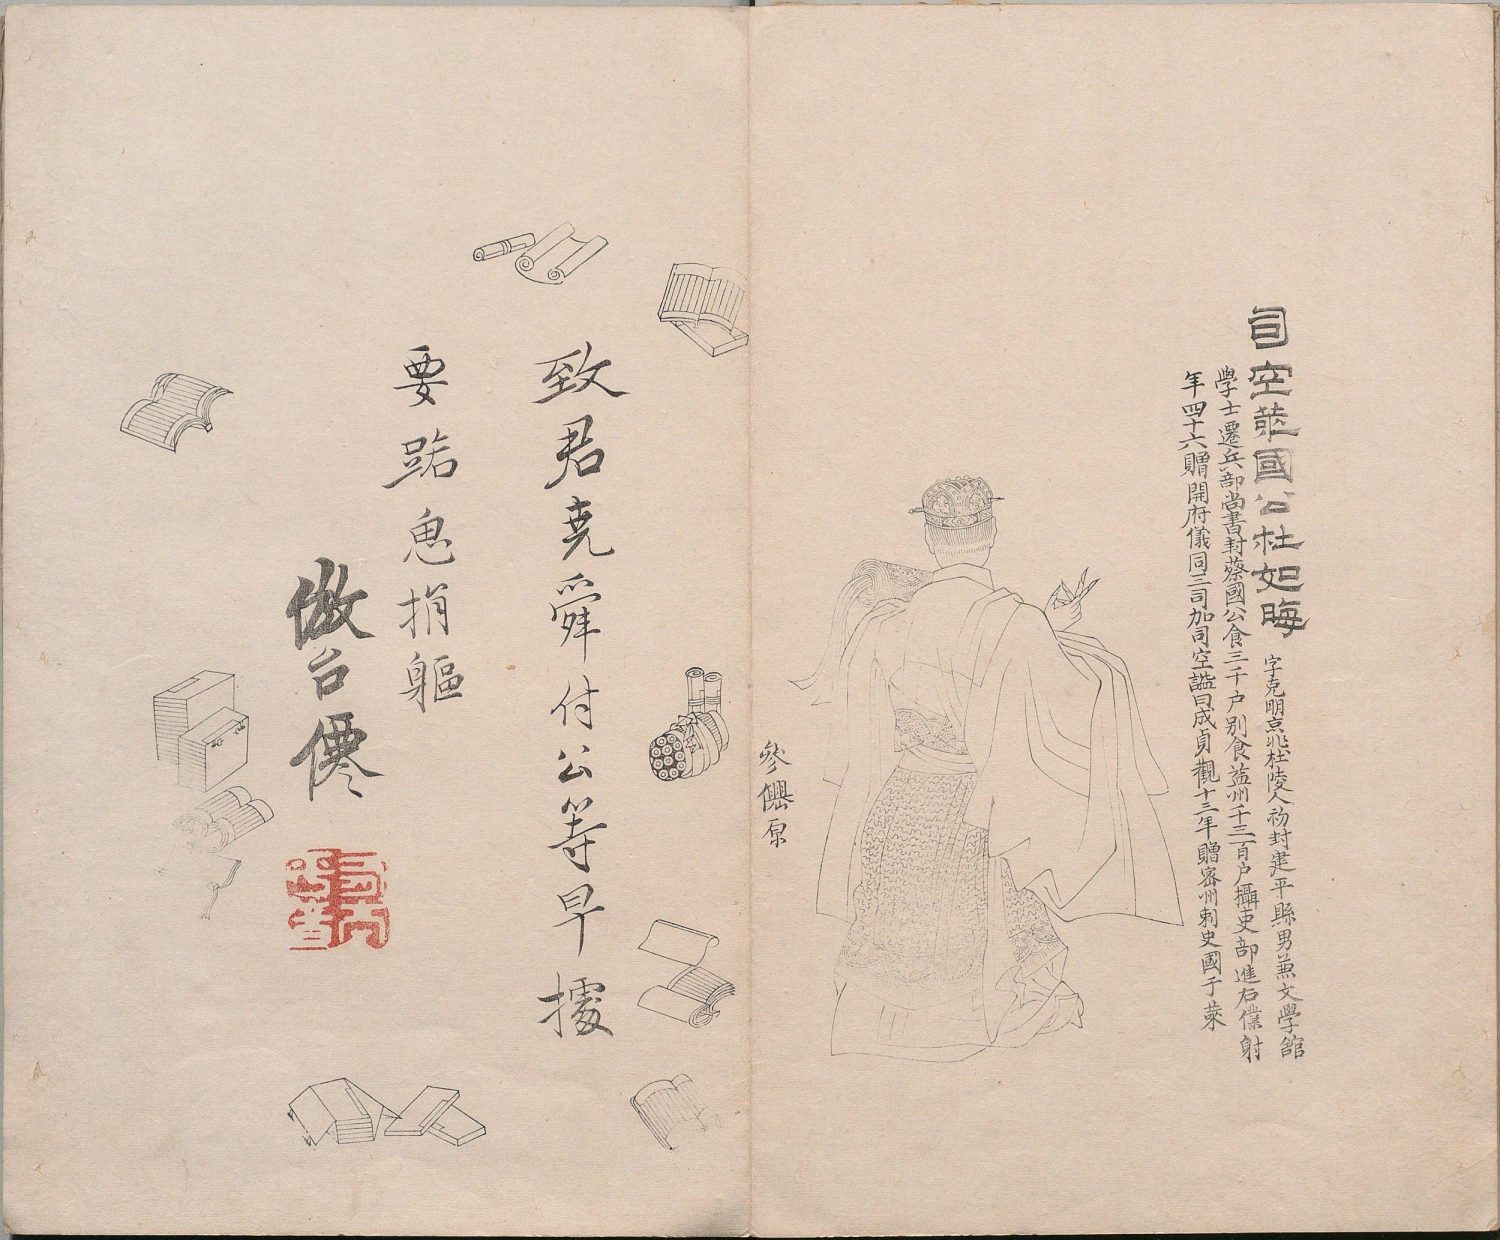 司空萊國公杜如晦
字克明京兆杜陵人初封建平縣男兼文學舘
學士遷兵部尚書封蔡國公食三千户别食益州千三百户攝吏部進右僕射
年四十六贈開府儀同三司加司空謚曰成貞觀十三年贈密州刺史國于萊
致君堯舜付公等早據
要路思捐軀
倣台僊